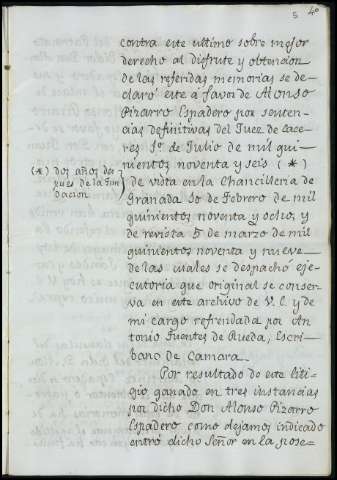 5 40
contra este ultimo sobre mejor
derecho al disfrute y obtencion
de las referidas memorias se de-
claró este á favor de Alonso
Pizarro Espadero por senten-
cias definitivas del Juez de Cace-
res 1º de Julio de mil qui-
nientos noventa y seis (*)
(*) dos años des-
pues de la fun-
dacion
de vista en la Chancilleria de
Granada 10 de Febrero de mil
quinientos noventa y ocho, y
de revista 5 de marzo de mil
quinientos noventa y nueve
de las cuales se despachó eje-
cutoria que original se conser-
va en este archivo de V. E. y de
mi cargo refrendada por An-
tonio Fuentes de Rueda, Escri-
bano de Camara.
Por resultado de este liti-
gio ganado en tres instancias
por dicho Don Alonso Pizarro
Espadero como dejamos indicado
entró dicho Señor en la pose-